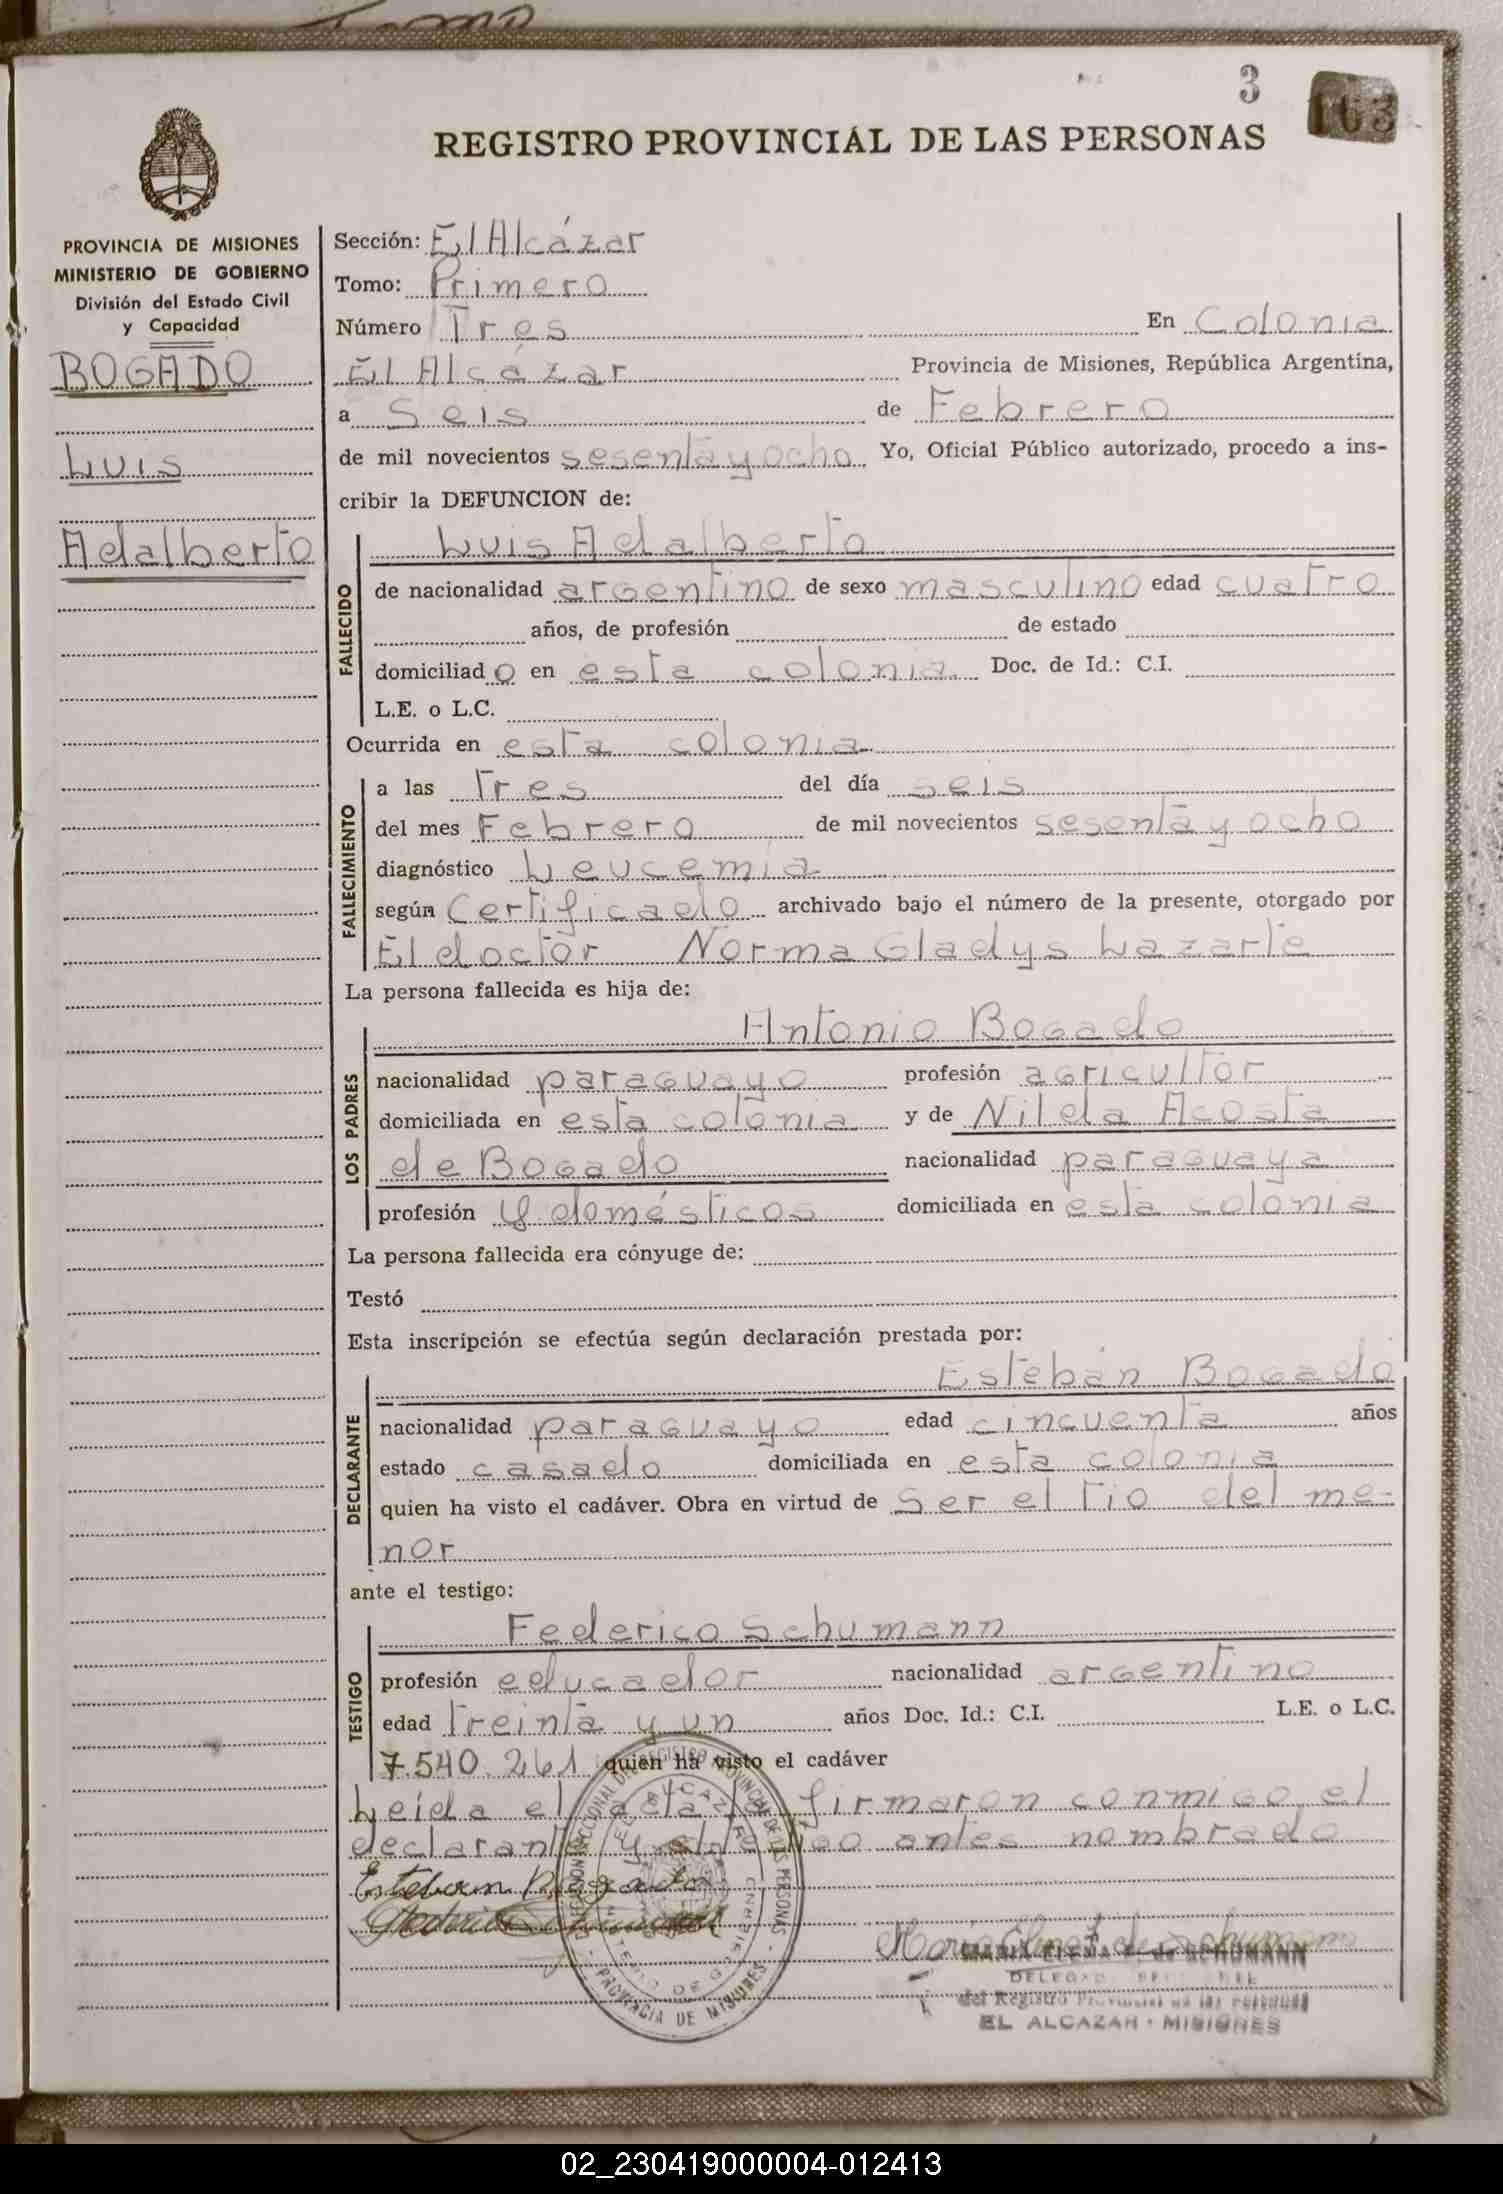 3
163
REGISTRO PROVINCIAL DE LAS PERSONAS
PROVINCIA DE MISIONES
MINISTERIO DE GOBIERNO
División del Estado Civil
y Capacidad
BOGADO
Luis
Adalberto
Sección: El Alcázar
Tomo: Primero
Número Tres En Colonia
El Alcázar Provincia de Misiones, República Argentina,
a Seis de Febrero
de mil novecientos sesenta y ocho Yo, Oficial Público autorizado, procedo a ins-
cribir la DEFUNCION de:
FALLECIDO
Luis Adalberto
de nacionalidad argentino de sexo masculino edad cuatro
años, de profesión de estado
domiciliado en esta colonia Doc. de Id.: C.I.
L.E. o L.C.
Ocurrida en esta colonia
FALLECIMIENTO
a las Tres del día seis
del mes Febrero de mil novecientos sesenta y ocho
diagnóstico Leucemia
según Certificado archivado bajo el número de la presente, otorgado por
El doctor Norma Gladys Lazarte
La persona fallecida es hija de:
LOS PADRES
Antonio Bogado
nacionalidad paraguayo profesión agricultor
domiciliada en esta colonia y de Nilda Acosta
de Bogado nacionalidad paraguaya
profesión Q. domésticos domiciliada en esta colonia
La persona fallecida era cónyuge de:
Testó
Esta inscripción se efectúa según declaración prestada por:
DECLARANTE
Esteban Bogado
nacionalidad paraguayo edad cincuenta años
estado casado domiciliada en esta colonia
quien ha visto el cadáver. Obra en virtud de ser el tio del me-
nor
ante el testigo:
TESTIGO
Federico Schumann
profesión educador nacionalidad argentino
edad treinta y un años Doc. Id.: C.I. L.E. o L.C.
7.540.261 quien ha visto el cadáver
Leída el acta la firmaron conmigo, el
declarante y el testigo antes nombrado
Esteban Bogado
DE LAS PERSONAS
PROVINCIA DE MISIONES
MARIA ELENA de SCHUMANN
del Registro Provincial de las Personas
EL ALCAZAR - MISIONES
02_230419000004-012413